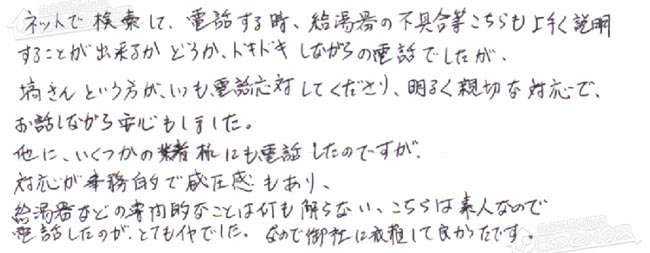 ネットで検索して、電話する時、給湯器の不具合等こちらも上手く説明
することが出来るかどうか、ドキドキしながらの電話でしたが、
塙さんという方が、いつも電話応対してくださり、明るく親切な対応で、
お話しながら安心もしました。
他に、いくつかの業者様にも電話したのですが、
対応が事務的で威圧感もあり、
給湯器などの専門的なことは何も解らない、こちらは素人なので
電話したのが、とてもイヤでした。なので御社に依頼して良かったです。